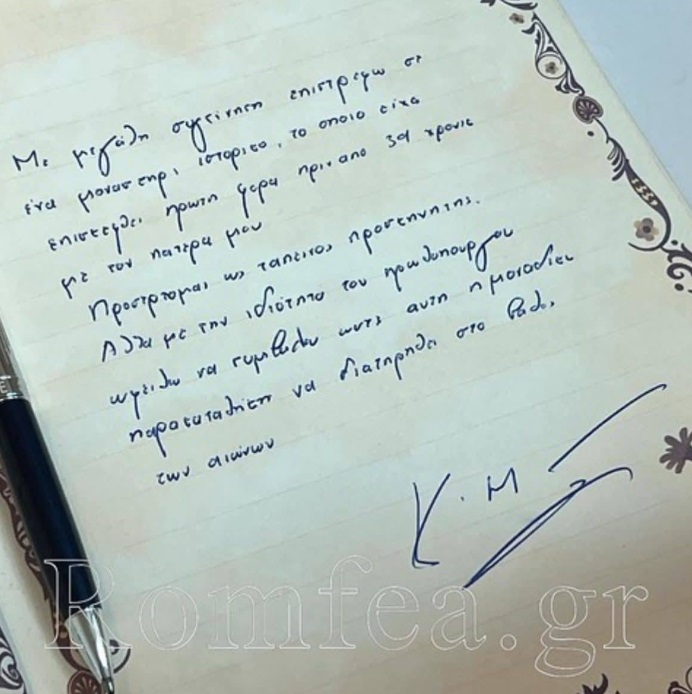 Με μεγάλη συγκίνηση επιστρέφω σε
ένα μοναστηρι, ιστορικο, το οποιο είχα
επισκεφθει πρωτη φορα πριν απο 39 χρονια
με τον πατερα μου
Προσερχομαι ως ταπεινος προσκηνητης.
Αλλα με την ιδιότητα του πρωθυπουργου
οφειλω να συμβαλω ωστε αυτη η μοναδικη
παρακαταθηκη να διατηρηθει στο βαθος
των αιωνων
Κ. Μ
Romfea.gr